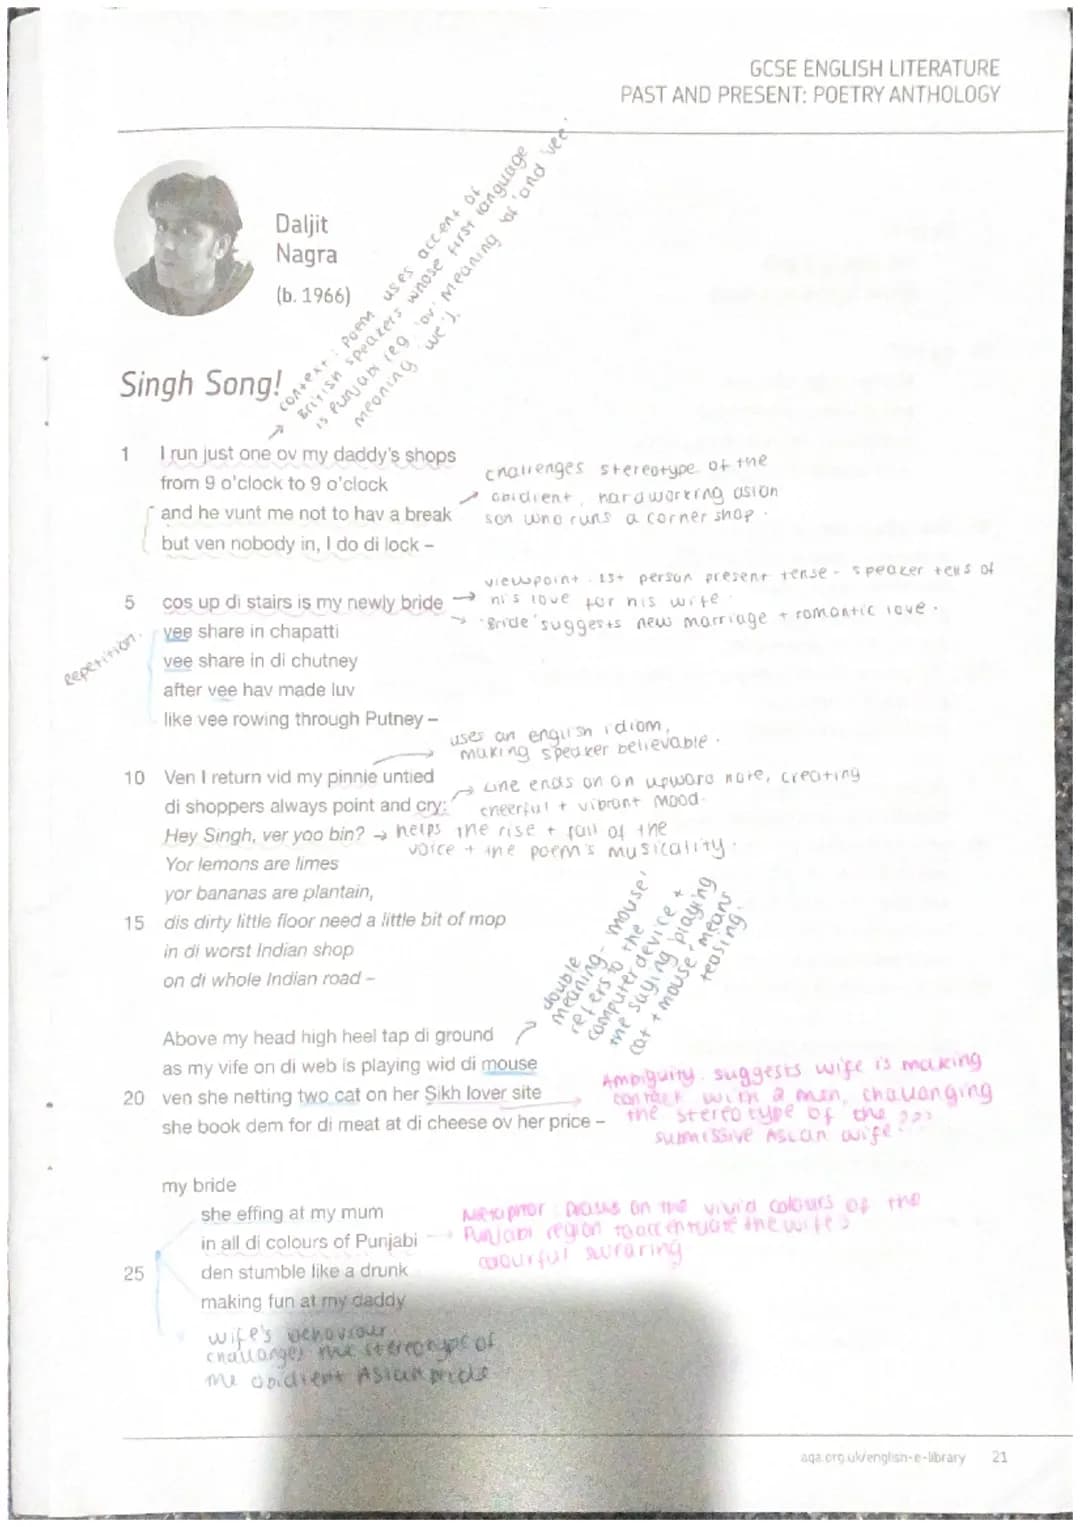 GCSE ENGLISH LITERATURE
PAST AND PRESENT: POETRY ANTHOLOGY
Daljit
Nagra
(b. 1966)
Singh Song!
context: Poem uses accent of
British speakers whose first language
is Punjabi (eg 'ov' meaning 'of' and 'vee'
meaning 'we').
1 I run just one ov my daddy's shops
from 9 o'clock to 9 o'clock
and he vunt me not to hav a break
but ven nobody in, I do di lock –
challenges stereotype of the
obidient, hardworking asian
son who runs a corner shop.
viewpoint. 1st person present tense - speaker tells of
his love for his wife.
'Bride' suggests new marriage + romantic love.
5 cos up di stairs is my newly bride
vee share in chapatti
vee share in di chutney
after vee hav made luv
like vee rowing through Putney –
Repetition.
uses an english idiom,
making speaker believable.
10 Ven I return vid my pinnie untied
di shoppers always point and cry:
Hey Singh, ver yoo bin?
Yor lemons are limes
yor bananas are plantain,
15 dis dirty little floor need a little bit of mop
in di worst Indian shop
on di whole Indian road –
Line ends on an upward note, creating
cheerful + vibrant mood.
helps the rise + fall of the
voice + the poem's musicality.
double
meaning - 'mouse'
refers to the
computer device +
the saying 'playing
cat + mouse' means
teasing.
Above my head high heel tap di ground
as my vife on di web is playing wid di mouse
20 ven she netting two cat on her Sikh lover site
she book dem for di meat at di cheese ov her price –
Ambiguity. suggests wife is making
contact with 2 men, challanging
the stereotype of the
submissive Asian wife.
my bride
she effing at my mum
in all di colours of Punjabi
25 den stumble like a drunk
making fun at my daddy
Metaphor: Draws on the vivid colours of the
Punjabi region to accentuate the wife's
colourful swaring
wife's behaviour
challanges the stereotype of
the obidient Asian bride
aqa.org.uk/english-e-library 21